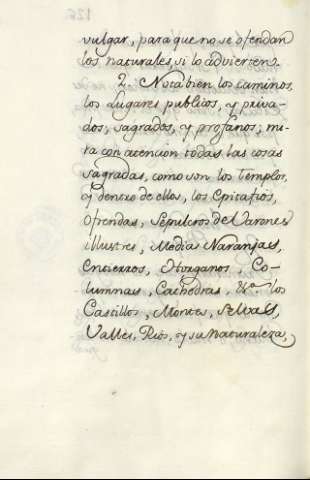 vulgar, para que no se ofendan
los naturales, si lo advierten.
2. Nota bien los caminos,
los lugares publicos, y priva-
dos, sagrados, y profanos; mi-
ra con atencion todas las cosas
sagradas, como son los Templos,
y dentro de ellos, los Epitafios,
Ofrendas, Sepulcros de Varones
illustres, Medias Naranjas,
Entierros, Organos Co-
lumnas, Cathedras, &a. los
Castillos, Montes, Selvas,
Valles, Rios, y su naturaleza,